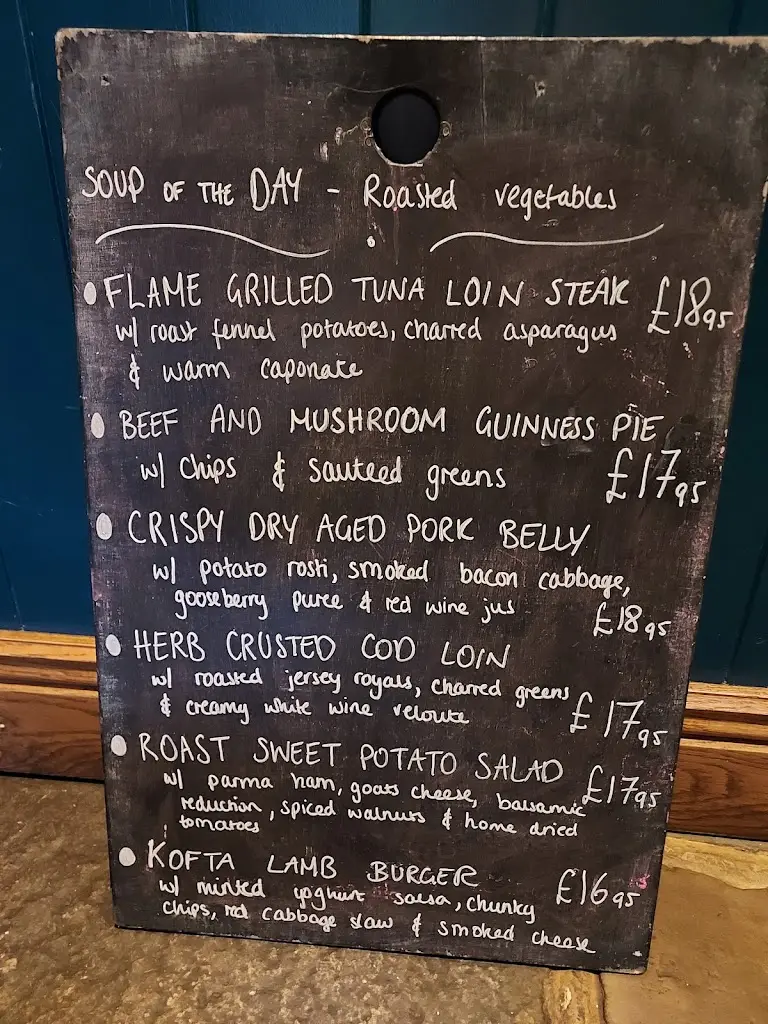 SOUP OF THE DAY - Roasted vegetables
• FLAME GRILLED TUNA LOIN STEAK £18.95
w/ roast fennel potatoes, charred asparagus
& warm caponate
• BEEF AND MUSHROOM GUINNESS PIE
w/ chips & sauteed greens £17.95
• CRISPY DRY AGED PORK BELLY
w/ potato rosti, smoked bacon cabbage,
gooseberry puree & red wine jus £18.95
• HERB CRUSTED COD LOIN
w/ roasted jersey royals, charred greens
& creamy white wine veloute £17.95
• ROAST SWEET POTATO SALAD £17.95
w/ parma ham, goats cheese, balsamic
reduction, spiced walnuts & home dried
tomatoes
• KOFTA LAMB BURGER £16.95
w/ minted yoghurt salsa, chunky
chips, red cabbage slaw & smoked cheese